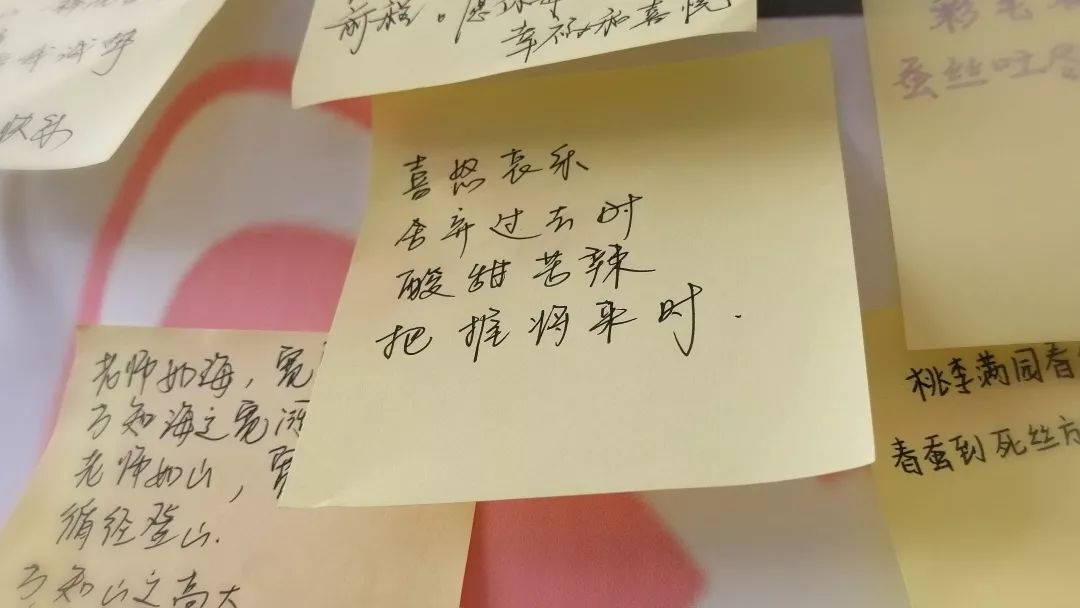 我诚呼
快乐
前程。愿你
幸福和喜悦
蚕丝吐尽
喜怒哀乐
舍弃过去时
酸甜苦辣
把握将来时.
老师如海，宽
方知海之宽
老师如山，
循径登山.
方知山之高大
桃李满园春
春蚕到死丝方